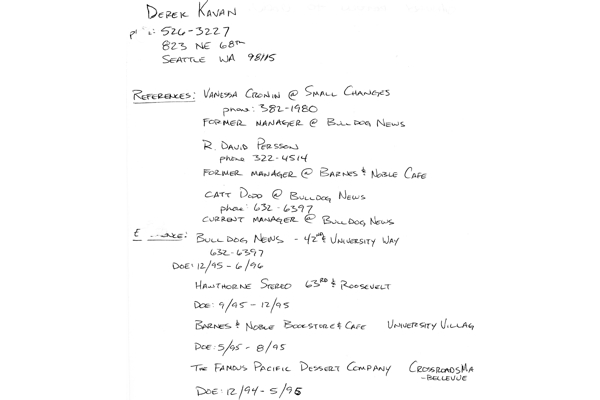 DEREK KAVAN
526-3227
823 NE 68TH
SEATTLE WA 98115
REFERENCES: VANESSA CRONIN @ SMALL CHANGES
phone: 382-1980
FORMER MANAGER @ BULLDOG NEWS
R. DAVID PERSSON
phone 322-4514
FORMER MANAGER @ BARNES & NOBLE CAFE
CATT DODD @ BULLDOG NEWS
phone: 632-6397
CURRENT MANAGER @ BULLDOG NEWS
BULLDOG NEWS - 42ND & UNIVERSITY WAY
632-6397
DOE: 12/95 - 6/96
HAWTHORNE STEREO 63RD & ROOSEVELT
DOE: 9/95 - 12/95
BARNES & NOBLE BOOKSTORE & CAFE UNIVERSITY VILLAG
DOE: 5/95 - 8/95
THE FAMOUS PACIFIC DESSERT COMPANY CROSSROADS MA
-BELLEVUE
DOE: 12/94 - 5/95